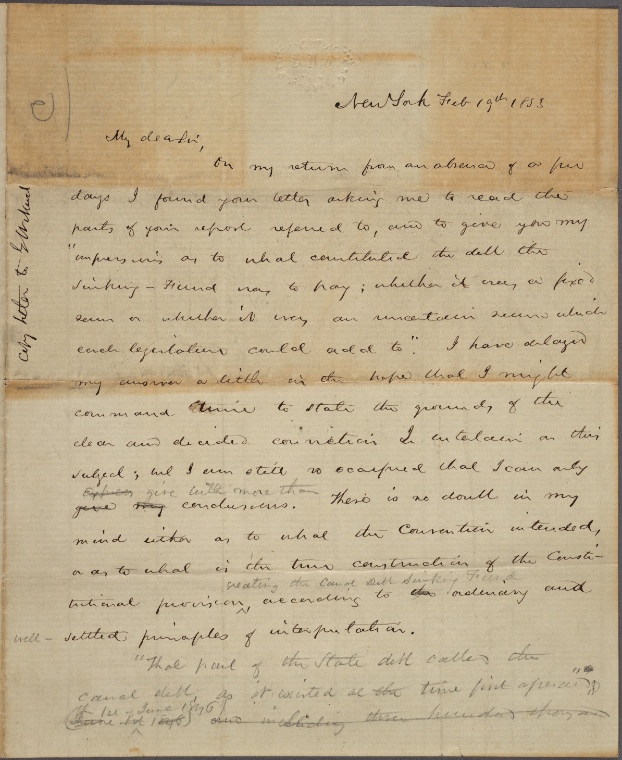 New York Feb 19th 1853
My dear Sir,
On my return from an absence of a few
days I found your letter asking me to read the
parts of your report referred to, and to give you my
"impressions as to what constituted the debt the
Sinking-Fund was to pay; whether it was a fixed
sum or whether it was an uncertain sum which
each legislature could add to". I have delayed
my answer a little in the hope that I might
command time to state the grounds of the
clear and decided conviction I entertain on this
subject; but I am still so occupied that I can only
express give little more than
give my conclusions. There is no doubt in my
mind either as to what the Convention intended,
or as to what is the true construction of the Consti-
creating the Canal Debt Sinking Fund
tutional provision, according to the ordinary and
well-settled principles of interpretation.
"That part of the State debt called the
canal debt, as it existed at the time first aforesaid"
(the 1st June 1846)
(June 1st 1846) and including three hundred thousand
Copy letter to